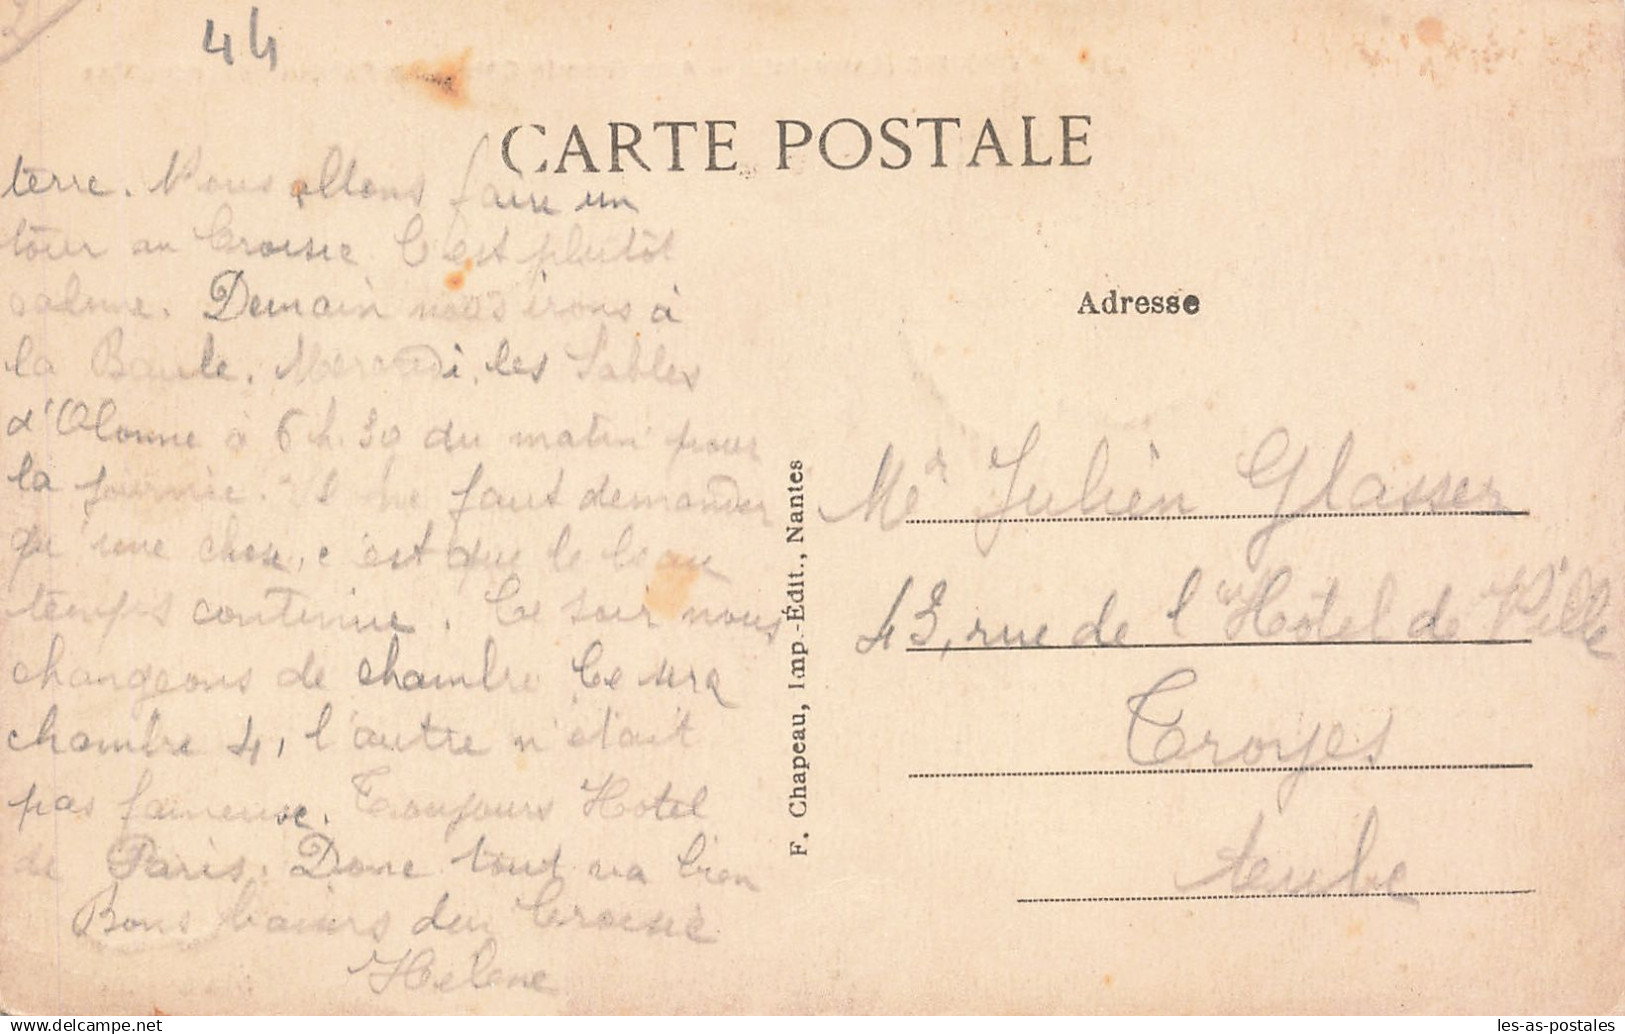 44
CARTE POSTALE
terre. Nous allons faire un
tour au Croisic. C'est plutôt
calme. Demain nous irons à
la Baule. Mercredi, les Sables
d'Olonne à 6 h. 30 du matin pour
la journée. Il ne faut demander
qu'une chose, c'est que le beau
temps continue. Ce soir nous
changeons de chambre Ce sera
chambre 4, l'autre n'était
pas fameuse. Toujours Hotel
de Paris. Donc tout va bien
Bons baisers du Croisic
Helene
F. Chapeau, Imp.-Édit., Nantes
Adresse
Mr Julien Glasser
43, rue de l'Hôtel de Ville
Troyes
Aube
les-as-postales
delcampe.net